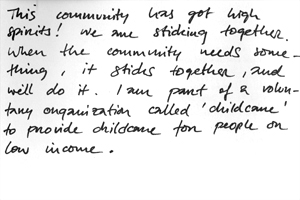 This community has got high
spirits! we are sticking together.
When the community needs some-
thing, it sticks together, and
will do it. I am part of a volun-
tary organization called 'childcare'
to provide childcare for people on
low income.